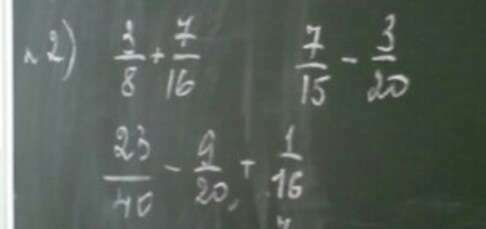 2) 3/8 + 7/16   7/15 - 3/20
23/40 - 9/20 + 1/16